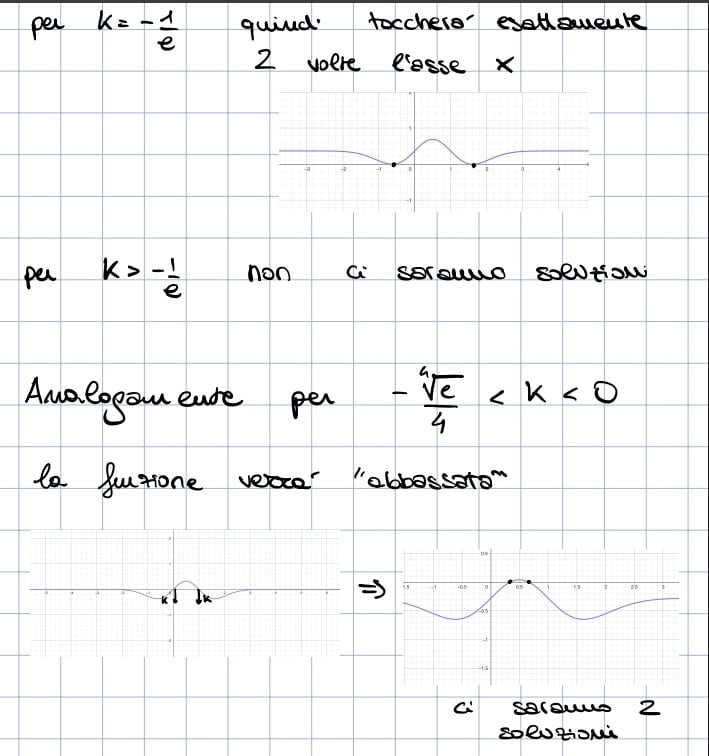 per k = -1/e quindi toccherà esattamente
2 volte l'asse x
1
-3 -2 -1 0 1 2 3 4
-1
per k > -1/e non ci saranno soluzioni
Analogamente per -∜e/4 < k < 0
la funzione verrà "abbassata"
k k ⇒
0.5
1.5 -1 -0.5 0 0.5 1 1.5 2 2.5 3
-0.5
-1
-1.5
ci saranno 2
soluzioni